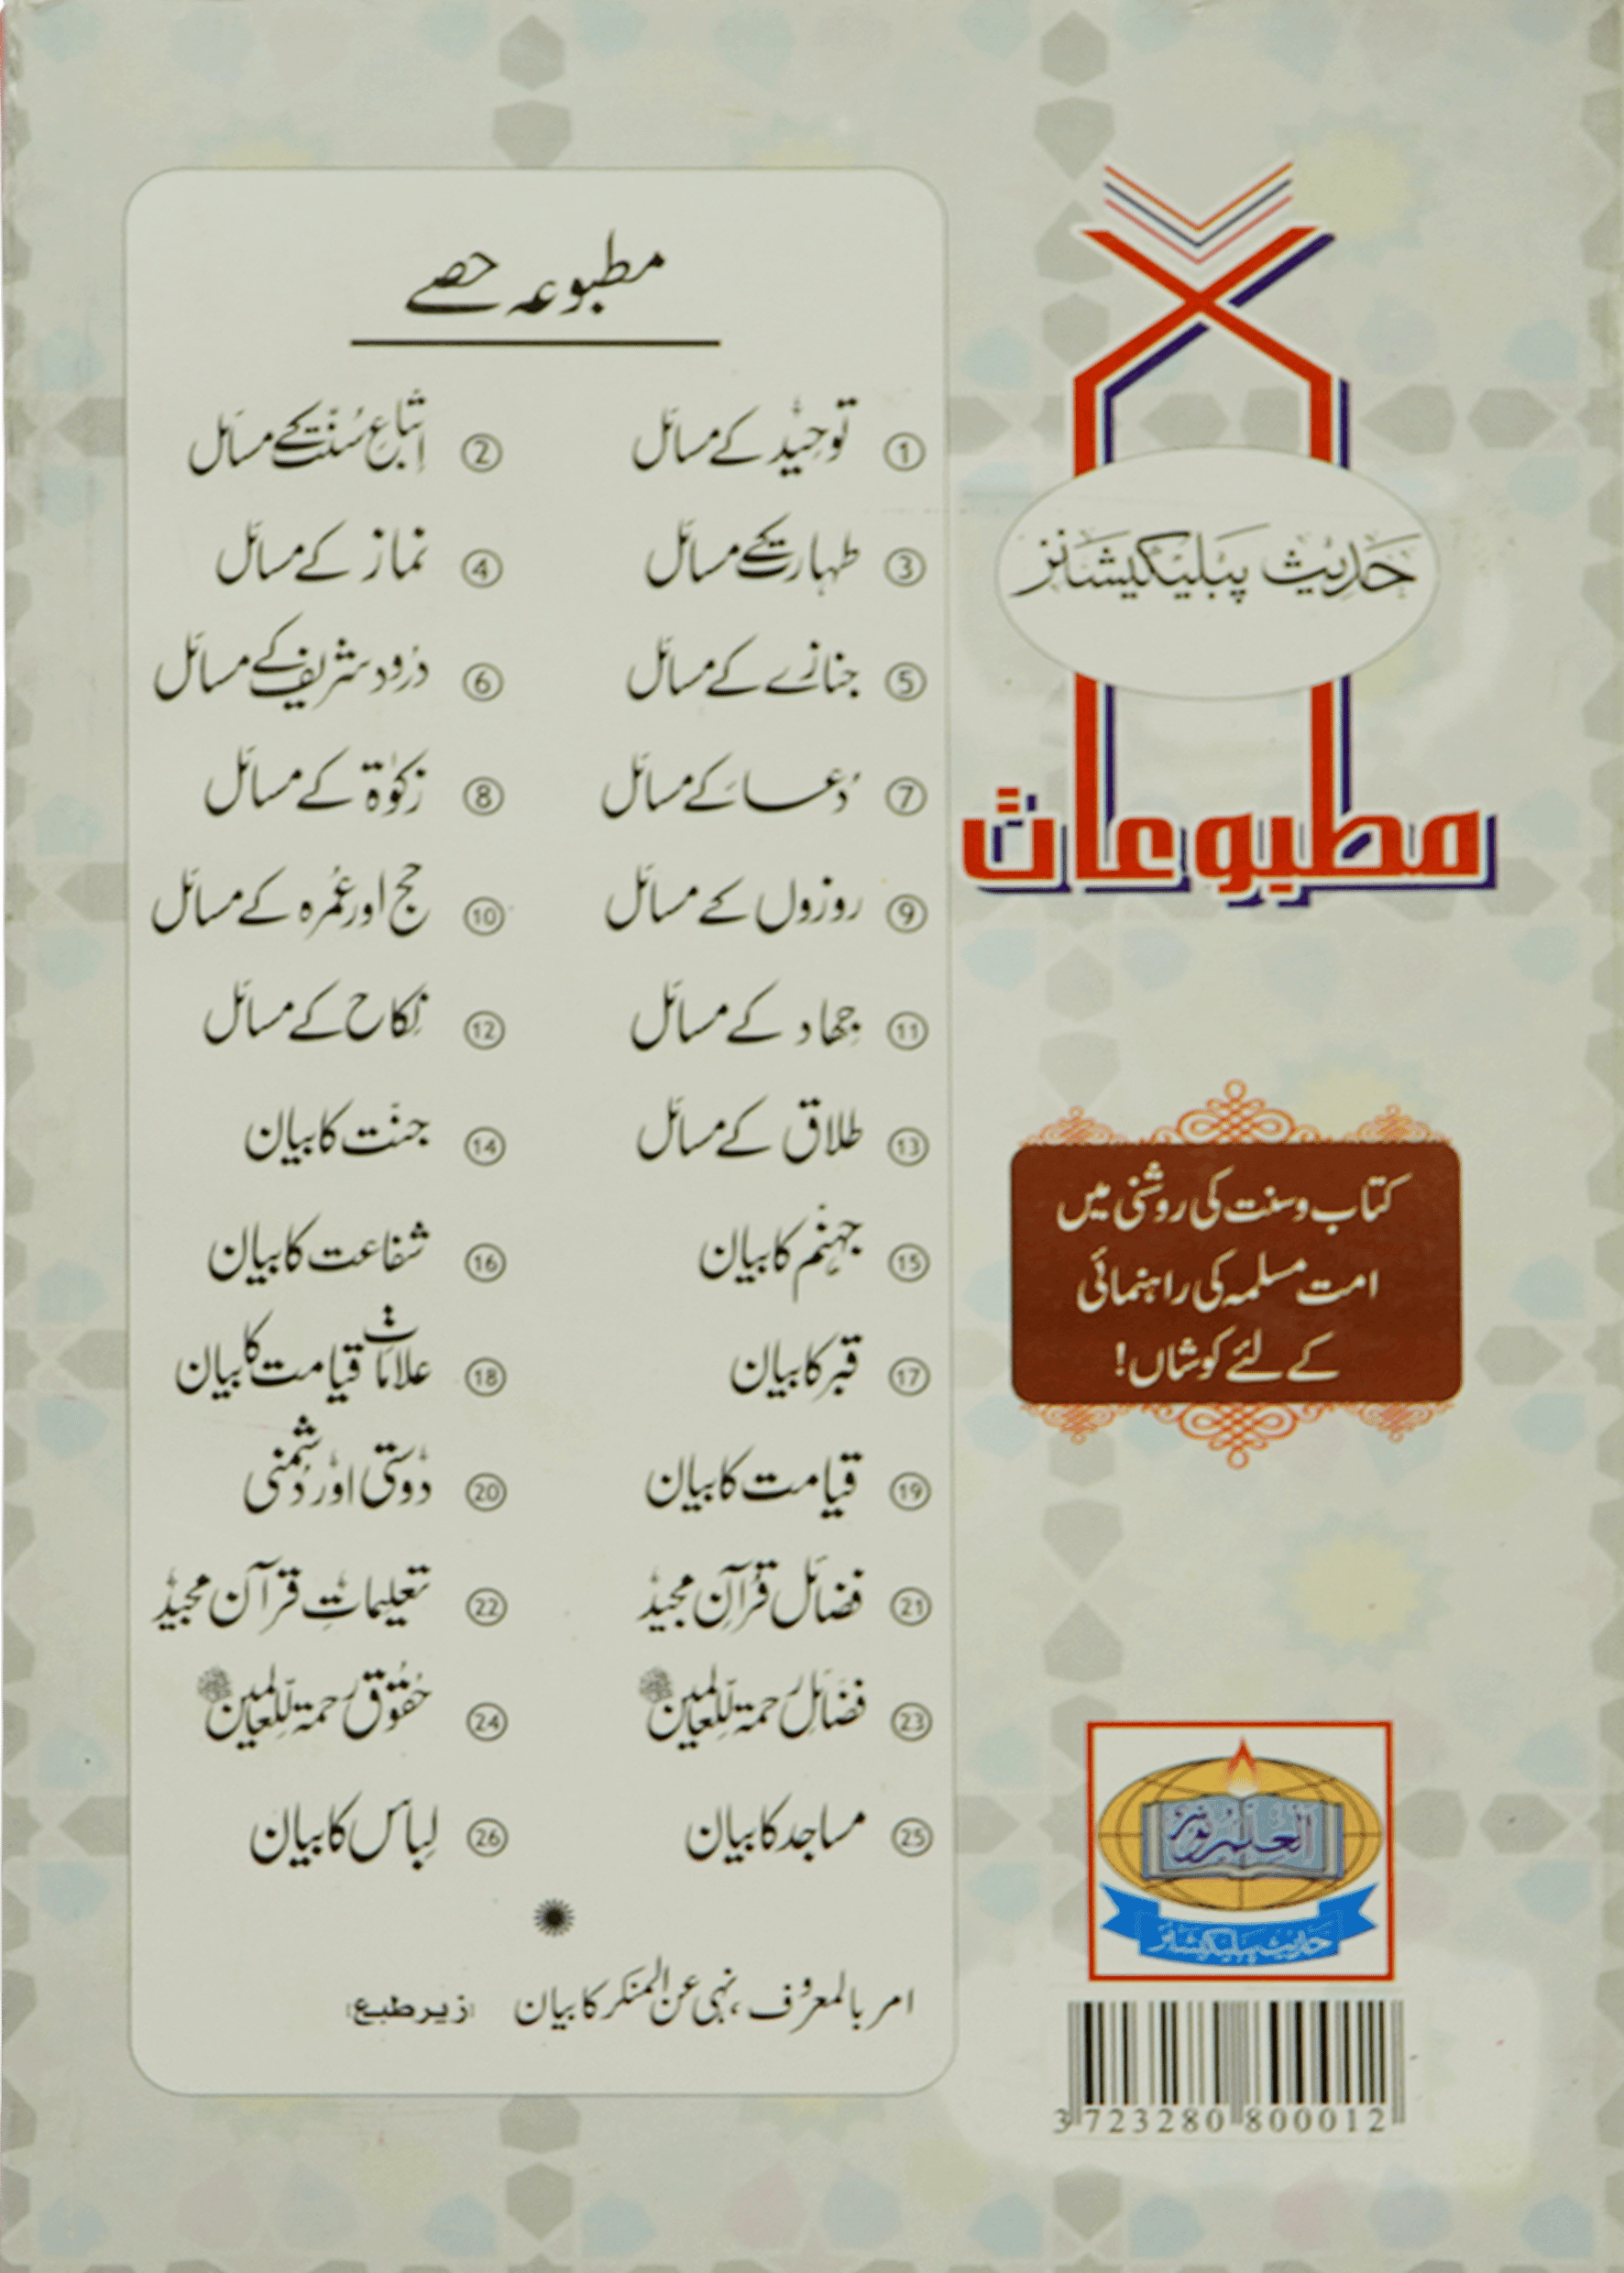 حدیث پبلیکیشنز
مطبوعات
کتاب و سنت کی روشنی میں
امت مسلمہ کی راہنمائی
کے لئے کوشاں!
العلم نور
حدیث پبلیکیشنز
3 723280 800012
مطبوعہ حصے
① توحید کے مسائل ② اتباعِ سُنّت کے مسائل
③ طہارت کے مسائل ④ نماز کے مسائل
⑤ جنازے کے مسائل ⑥ درود شریف کے مسائل
⑦ دُعا کے مسائل ⑧ زکوٰۃ کے مسائل
⑨ روزوں کے مسائل ⑩ حج اور عُمرہ کے مسائل
⑪ جہاد کے مسائل ⑫ نِکاح کے مسائل
⑬ طلاق کے مسائل ⑭ جنّت کا بیان
⑮ جہنّم کا بیان ⑯ شفاعت کا بیان
⑰ قبر کا بیان ⑱ علاماتِ قیامت کا بیان
⑲ قیامت کا بیان ⑳ دوستی اور دُشمنی
㉑ فضائل قُرآنِ مجید ㉒ تعلیماتِ قرآن مجید
㉓ فضائل رحمۃ للعالمین ﷺ ㉔ حُقوق رحمۃ للعالمین ﷺ
㉕ مساجد کا بیان ㉖ لِباس کا بیان
امر بالمعروف، نہی عن المنکر کا بیان (زیر طبع)